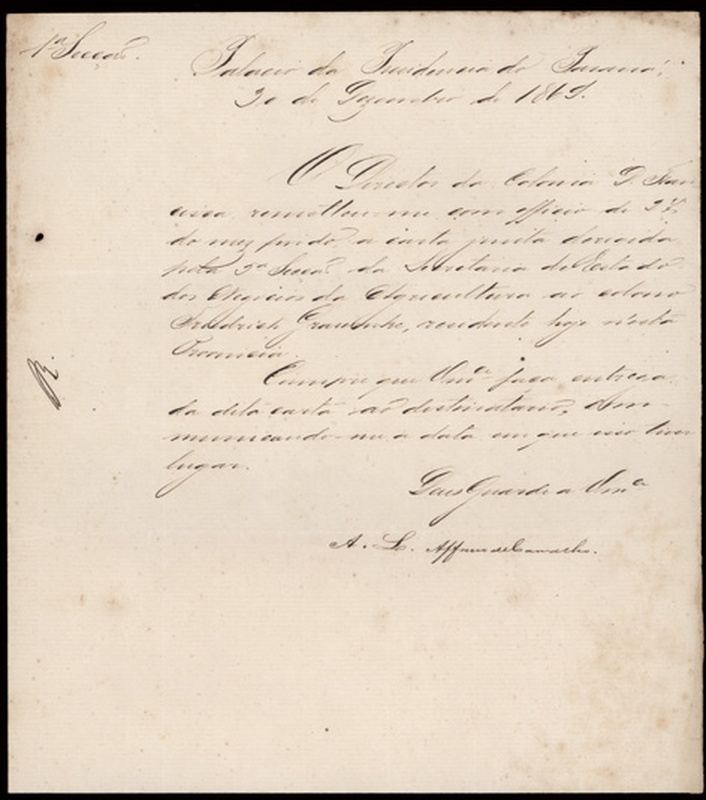 1ª Secção.
Palacio da Presidencia do Paraná,
20 de Dezembro de 1869.
O Director da Colonia D. Fran
cisca remetteu-me com officio de 28
do mez findo a carta junta dirigida
pela 2ª Secção da Secretaria de Estado
dos Negocios da Agricultura ao colono
Friedrich, residente hoje n'esta
Provincia.
Cumpre que Vmce faça entrega
da dita carta ao destinatario, com-
municando-me a data em que isso tiver
lugar.
Deus Guarde a Vmce
A. L. Affonso de Carvalho.